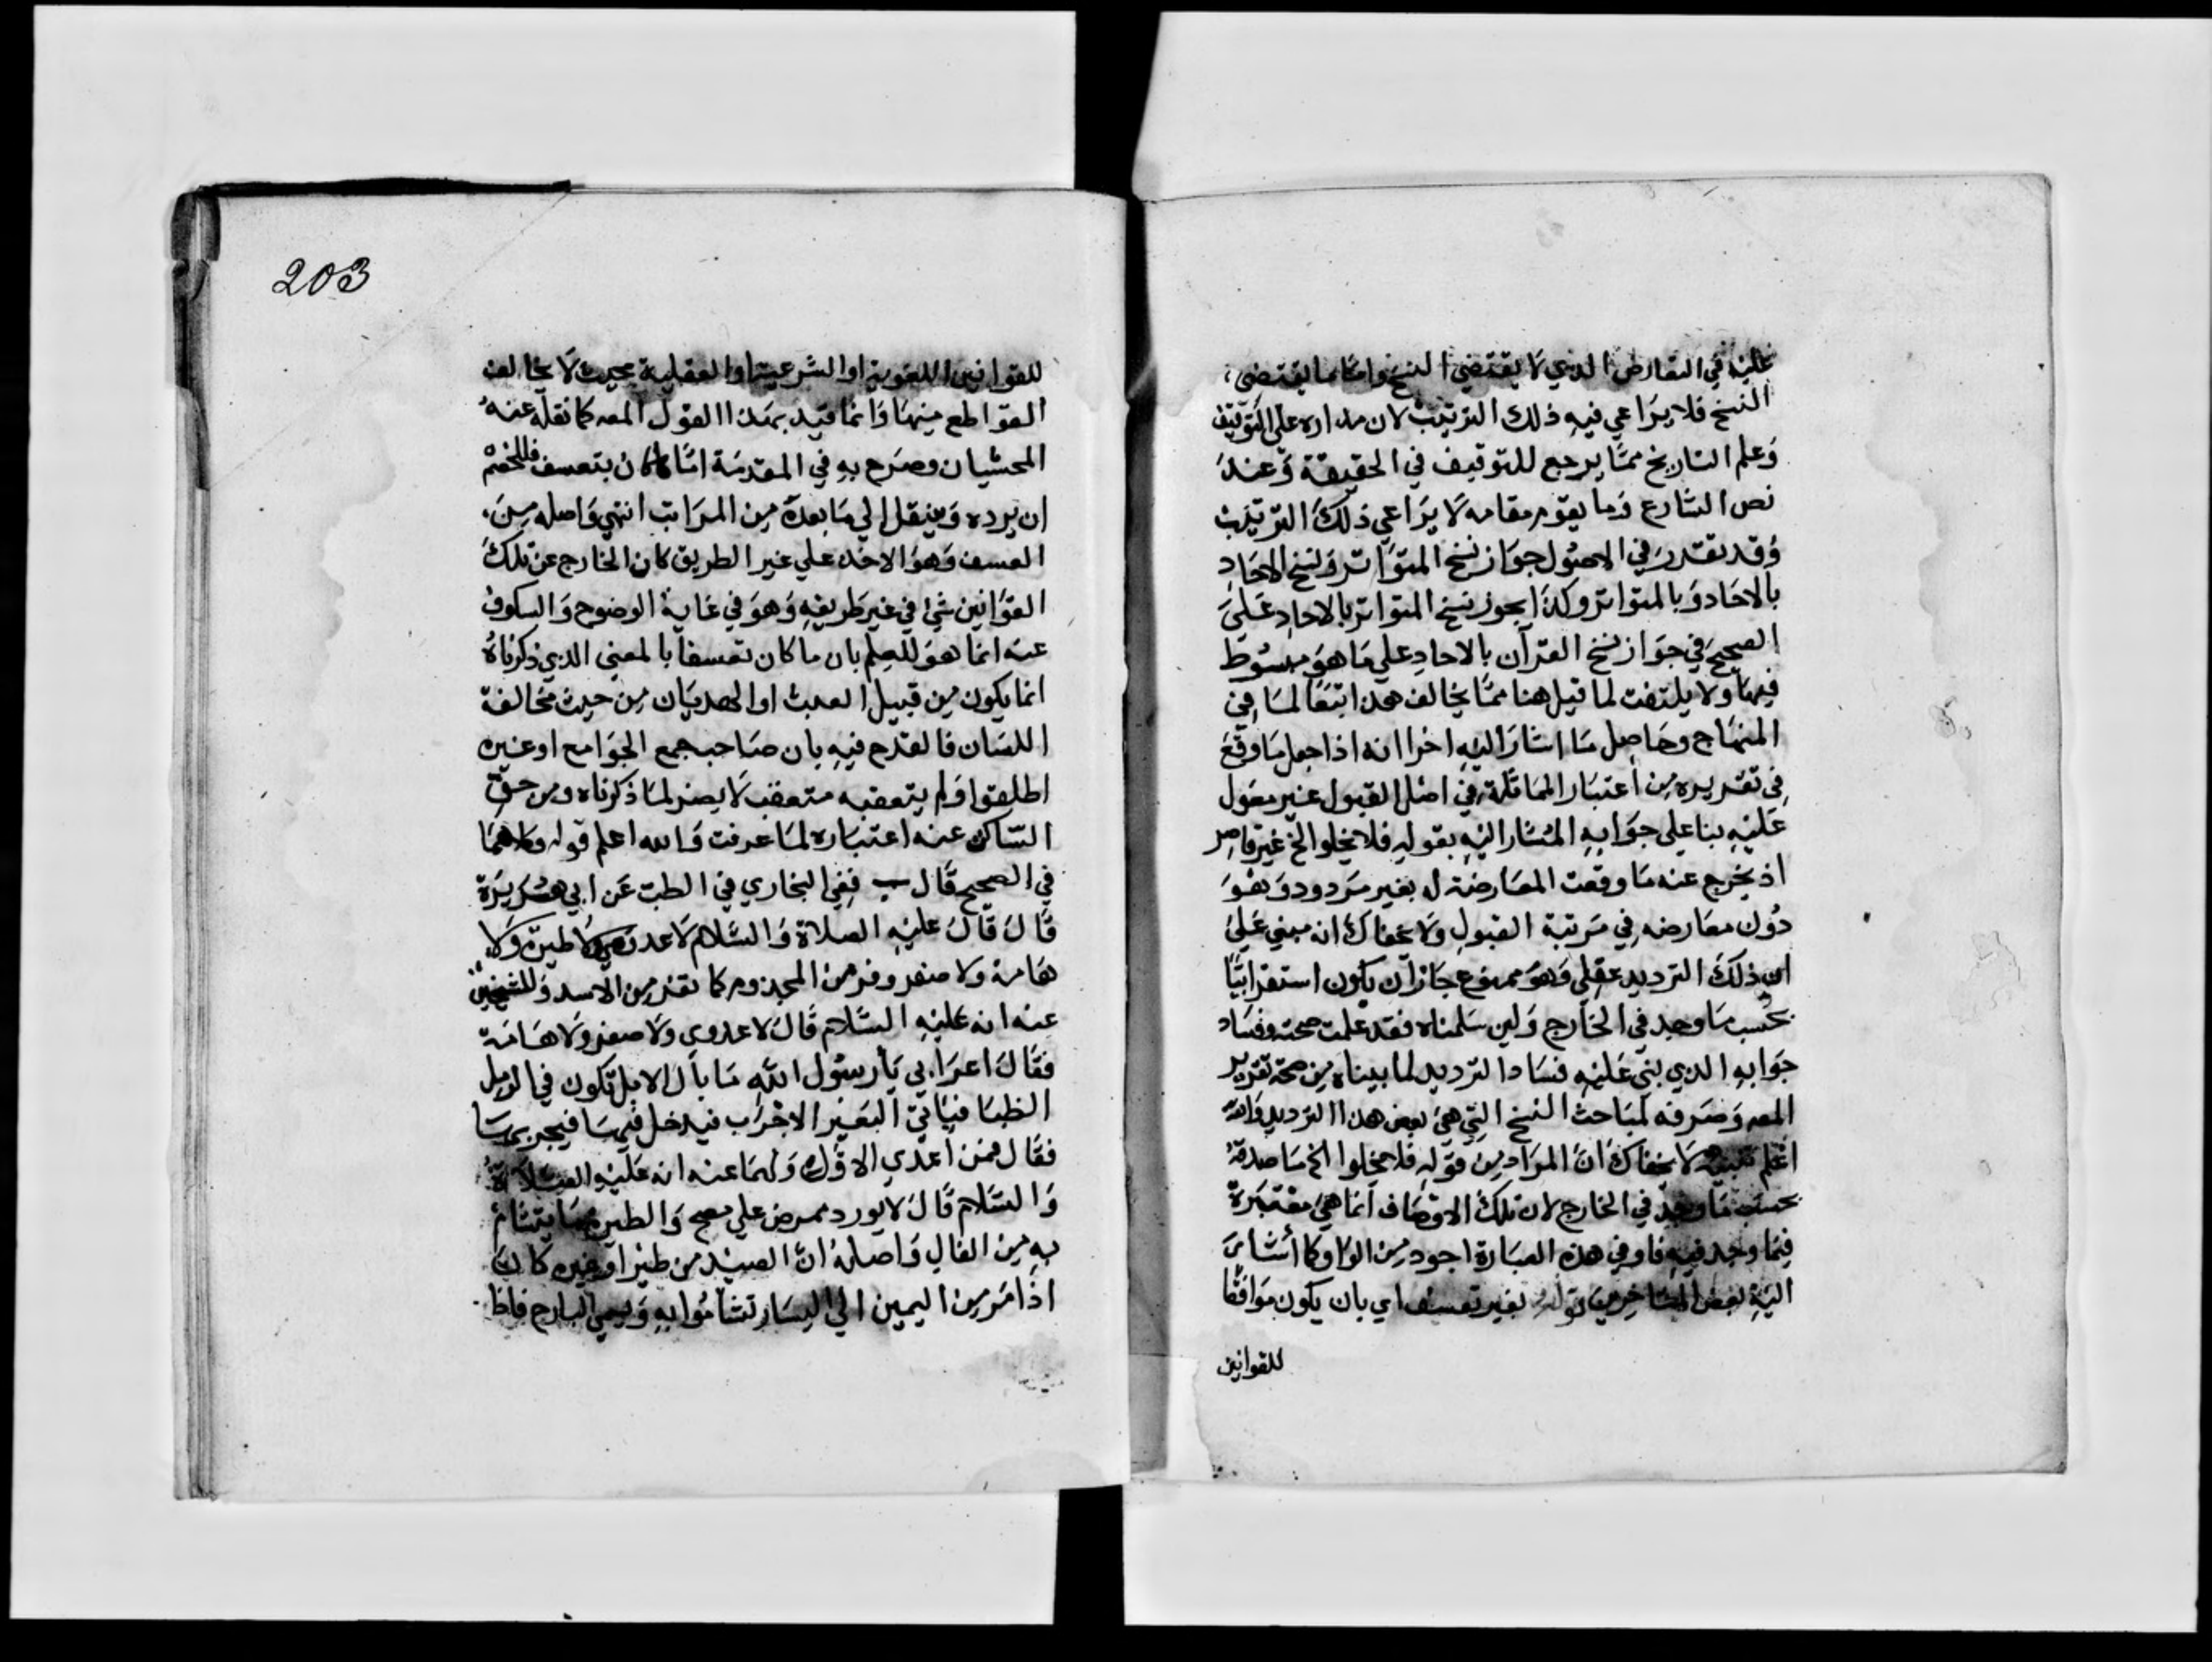 عليه في التعارض الذي لا يقتضي النسخ واما ما يقتضي
النسخ فلا يراعي فيه ذلك الترتيب لان مداره علي التوقيف
وعلم التاريخ مما يرجع للتوقيف في الحقيقة وعند
نص الشارع وما يقوم مقامه لا يراعي ذلك الترتيب
وقد تقدر في الاصول جواز نسخ المتواتر ونسخ الاحاد
بالاحاد وبالمتواتر وكذا يجوز نسخ المتواتر بالاحاد علي
الصحيح في جواز نسخ القرآن بالاحاد علي ما هو مبسوط
فيها ولا يلتفت لما قيل هنا مما يخالف هذا تبعا لما في
المنهاج وحاصل ما اشار اليه اخرا انه اذا جعل ما وقع
في تقريره من اعتبار المماثلة في اصل القبول غير معول
عليه بنا علي جوابه المشار اليه بقوله فلا يخلوا الخ غير قاصر
اذ يخرج عنه ما وقعت المعارضة له بغير مردود وهو
دون معارضه في مرتبة القبول ولا يخفاك انه مبني علي
ان ذلك الترديد عقلي وهو ممنوع جاز ان يكون استقرائيا
بحسب ما وجد في الخارج ولين سلمناه فقد علمت صحته وفساد
جوابه الذي بني عليه فساد الترديد لما بيناه من صحة تقرير
المصه وصرفه لمباحث النسخ التي هي بعض هذا الترديد والله
اعلم تنبيه لا يخفاك ان المراد من قوله فلا يخلوا الخ ما صدقه
بحسب ما وجد في الخارج لان تلك الاوصاف انما هي معتبرة
فيما وجد فيه فاو في هذه العبارة اجود من الواو كما أشار
اليه بعض المتاخرين قوله بغير تعسف اي بان يكون موافقا
للقوانين
203
للقوانين اللغوية او الشرعية او العقلية بحيث لا يخالف
القواطع منها وانما قيد بهذا القول المصه كما نقله عنه
المحشيان وصرح به في المقدمة اما ما كان بتعسف فللخصم
ان يرده وينتقل الي ما بعده من المراتب انتهي واصله من
العسف وهو الاخذ علي غير الطريق كان الخارج عن تلك
القوانين شي في غير طريقه وهو في غاية الوضوح والسكوت
عنه انما هو للعلم بان ما كان تعسفا بالمعني الذي ذكرناه
انما يكون من قبيل العبث او الهذيان من حيث مخالفة
اللسان فالقدح فيه بان صاحب جمع الجوامع او غيره
اطلقوا ولم يتعقبه متعقب لا يضر لما ذكرناه ومن حق
الساكت عنه اعتباره لما عرفت والله اعلم قوله وكلاهما
في الصحيح قال ب ففي البخاري في الطب عن ابي هريرة
قال قال عليه الصلاة والسلام لا عدوي ولا طيرة ولا
هامة ولا صفر وفر من المجذوم كما تفر من الاسد وللشيخين
عنه انه عليه السلام قال لا عدوي ولا صفر ولا هامة
فقال اعرابي يا رسول الله ما بال الابل تكون في الرمل
الظبا فياتي البعير الاجرب فيدخل فيها فيجربها
فقال فمن اعدي الاول ولهما عنه انه عليه الصلاة
والسلام قال لا يورد ممرض علي مصح والطيرة ما يتشائم
به من الفال واصله ان الصيد من طير او غيره كان
اذا مر من اليمين الي اليسار تشائموا به وسمي البارح فاذا